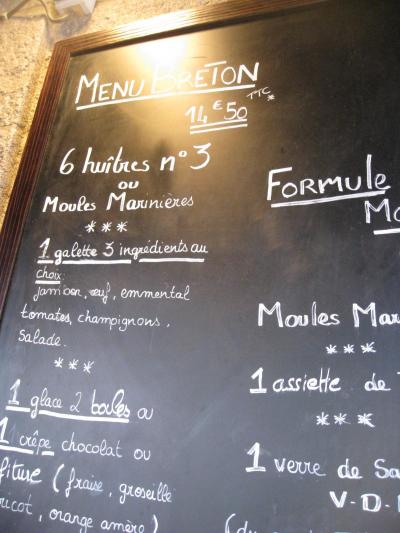 MENU BRETON
14€50 TTC *
6 huîtres n° 3
ou
Moules Marinières
* * *
1 galette 3 ingrédients au
choix:
jambon, œuf, emmental
tomates, champignons,
salade.
* * *
1 glace 2 boules ou
1 crêpe chocolat ou
fiture (fraise, groseille
ricot, orange amère)
FORMULE
Mo
Moules Mar
* * *
1 assiette de
* * *
1 verre de Sa
V-D-
(du